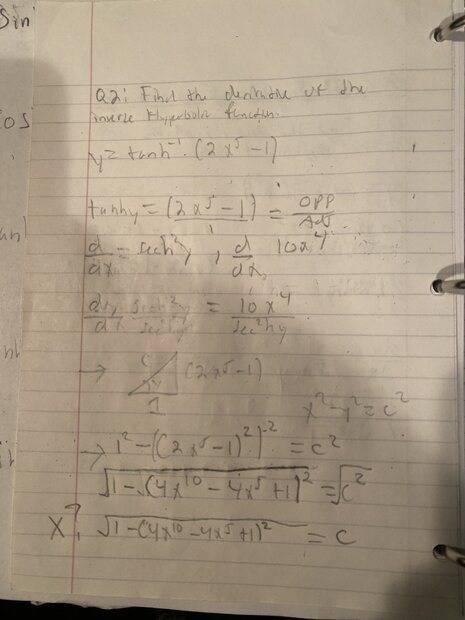 Sin
Q2: Find the derivative of the
inverse Hyperbolic function.
cos
y = tanh⁻¹ · (2x⁵ - 1)
tanhy = (2x⁵ - 1) = OPP/ADJ
d/dx = sech²y , d/dx 10x⁴
dy/dx sech²y/sech²y = 10x⁴/sec²hy
→ C y 1 (2x⁵-1)
x² - y² = c²
→ 1² - ((2x⁵ - 1)²)⁻² = c²
√1 - √(4x¹⁰ - 4x⁵ + 1)² = √c²
X? √1 - (4x¹⁰ - 4x⁵ + 1)² = c